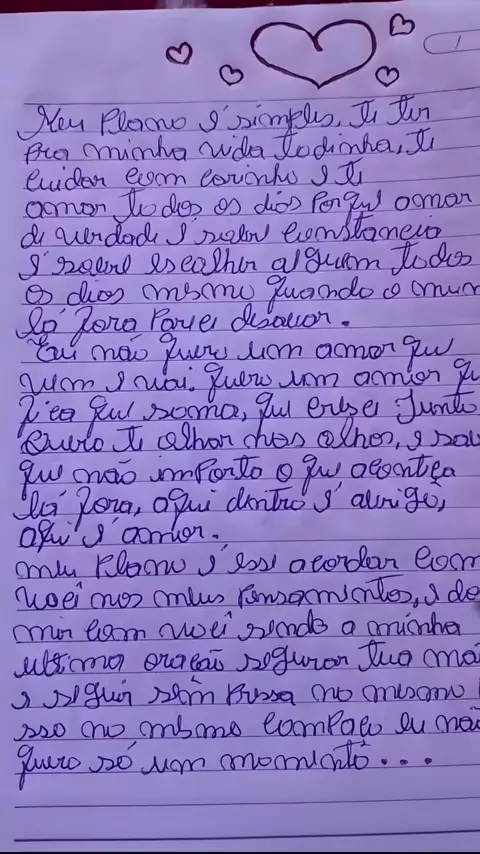 Meu Plano é simples, te ter
Pra minha vida todinha, te
cuidar com carinho e te
amar todos os dias Porque amar
de verdade é sobre constancia
é sobre escolher alguem todos
os dias mesmo quando o mun
lá fora Parece desabar.
Eu não quero um amor que
vem e vai. quero um amor qu
fica que soma, que cresce Junto
Quero te olhar nos olhos, e sab
que não importa o que aconteça
lá fora, aqui dentro é abrigo,
aqui é amor.
meu Plano é esse acordar com
você nos meus Pensamentos, e do
mir com você sendo a minha
ultima oração segurar tua mão
e seguir sem Pressa no mesmo
sso no mesmo compaço eu não
quero só um momento...